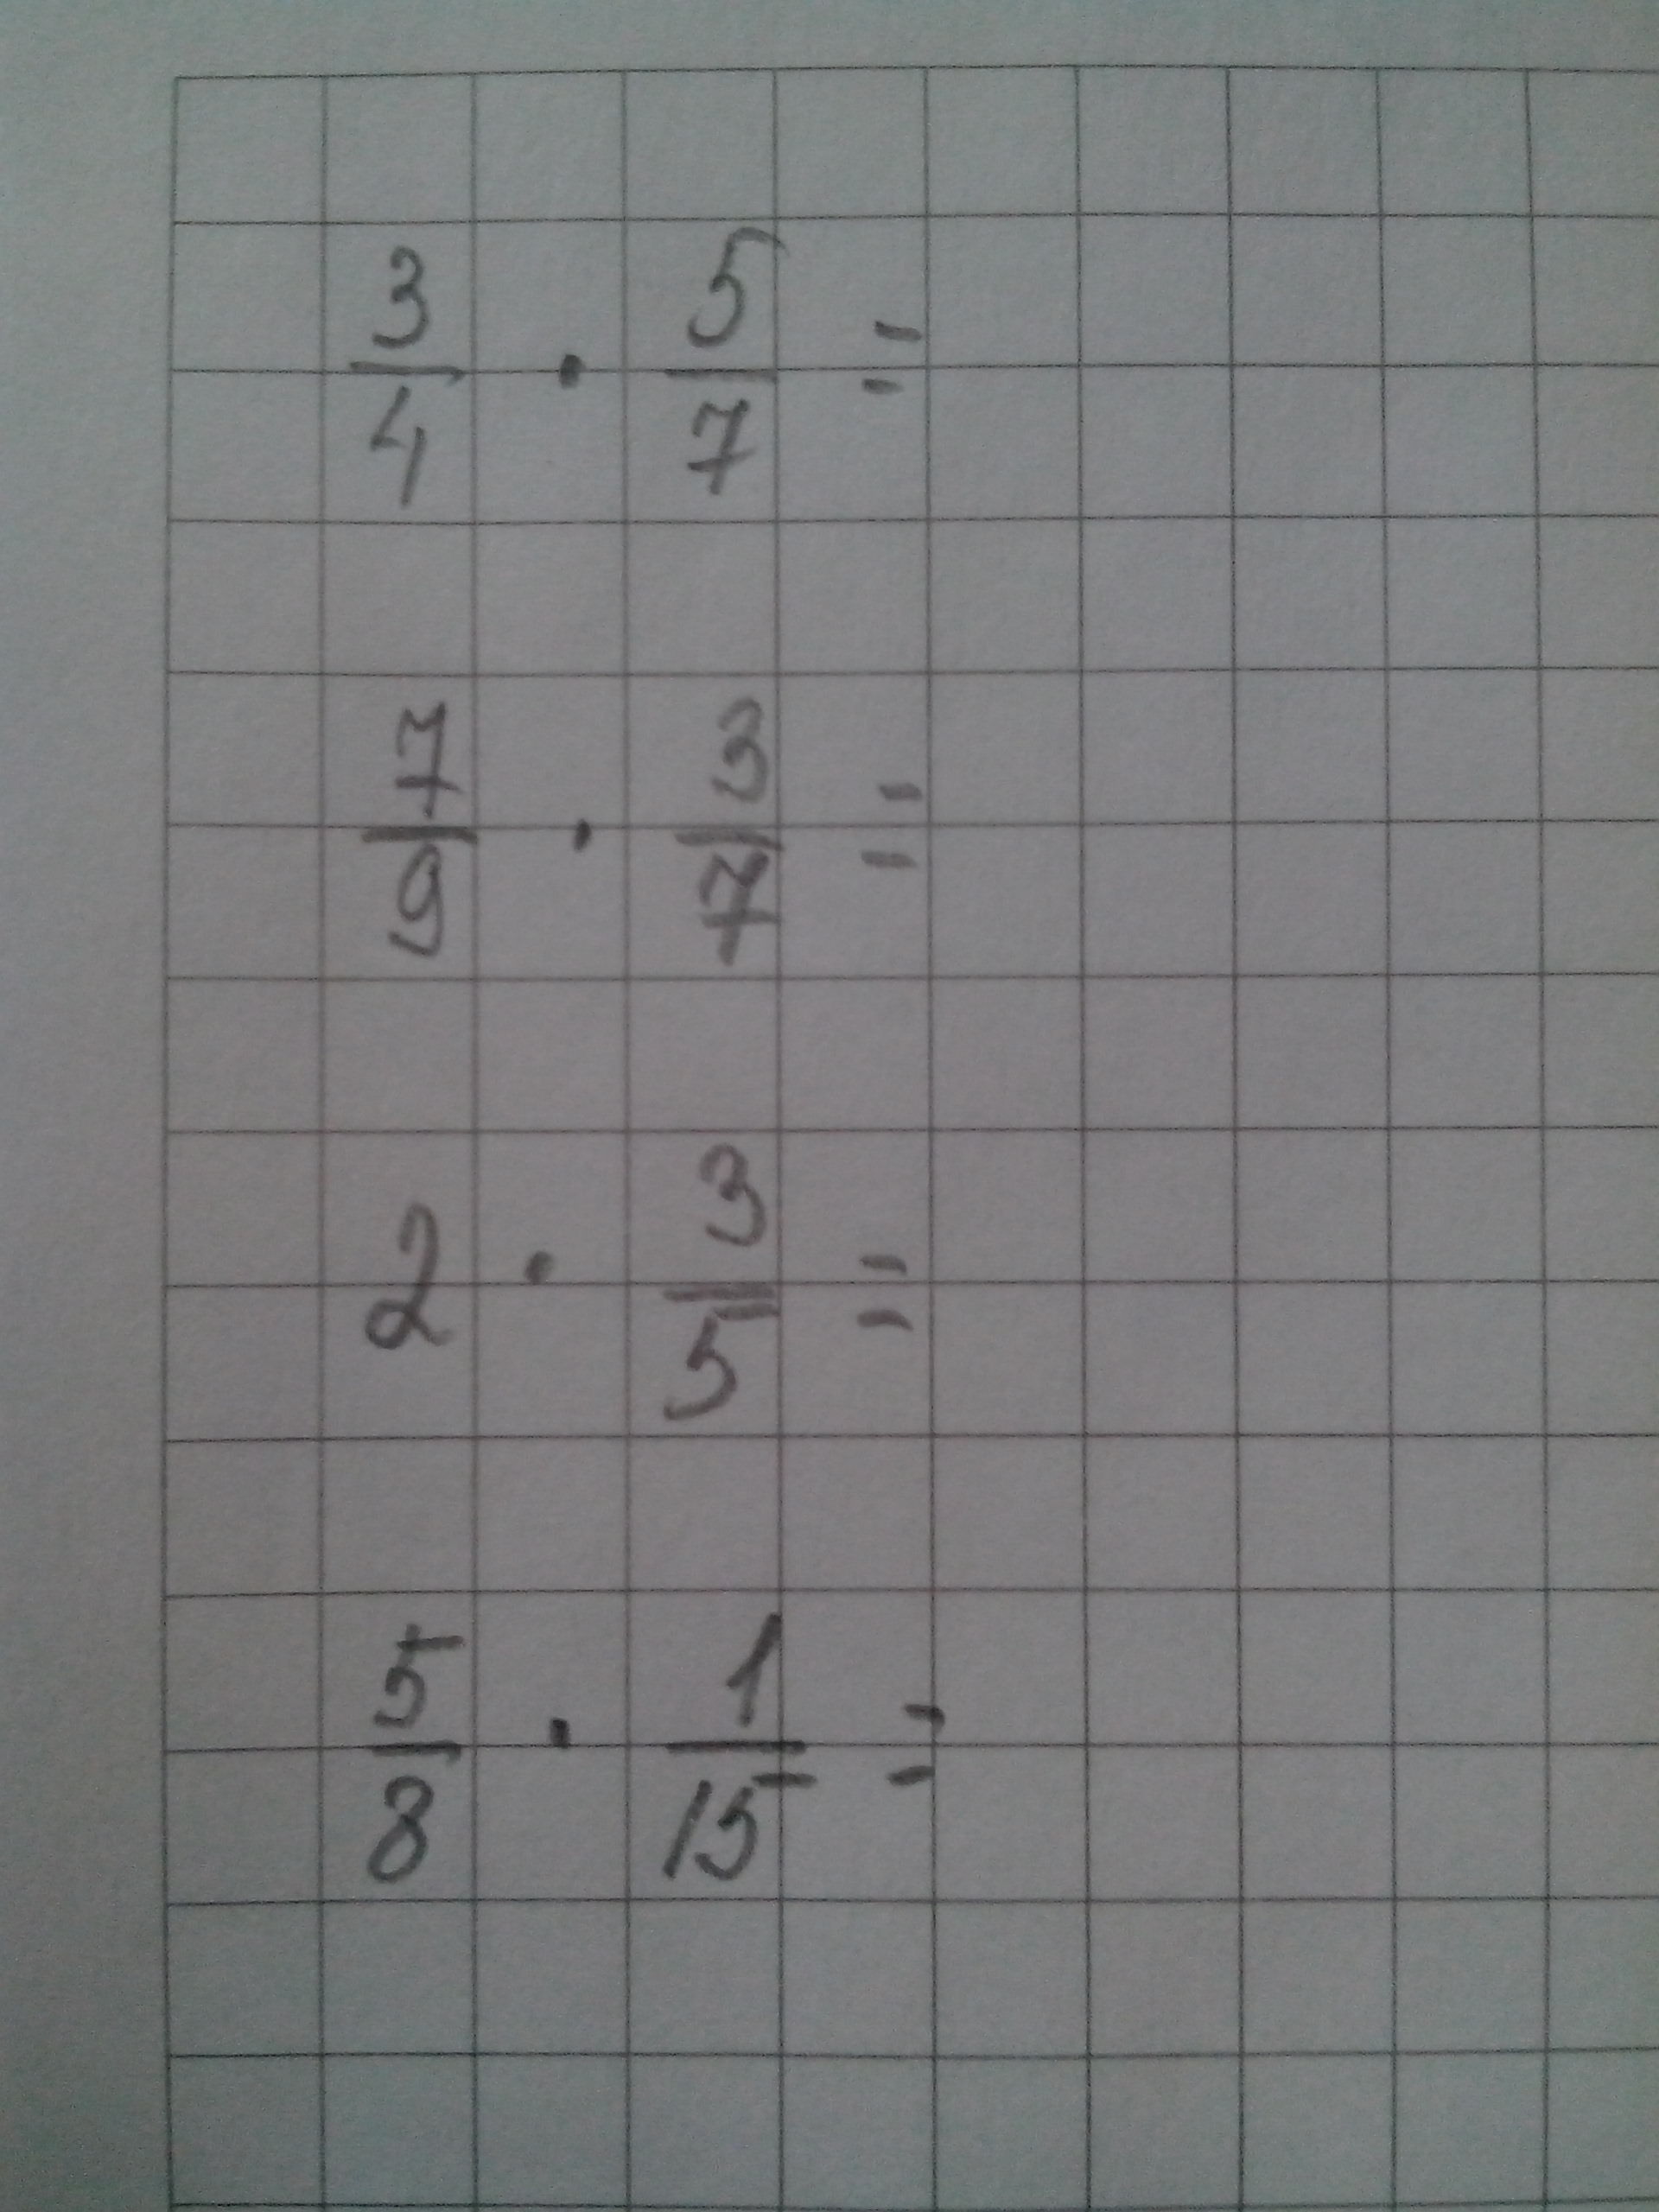 3/4 · 5/7 =
7/9 · 3/7 =
2 · 3/5 =
5/8 · 1/15 =